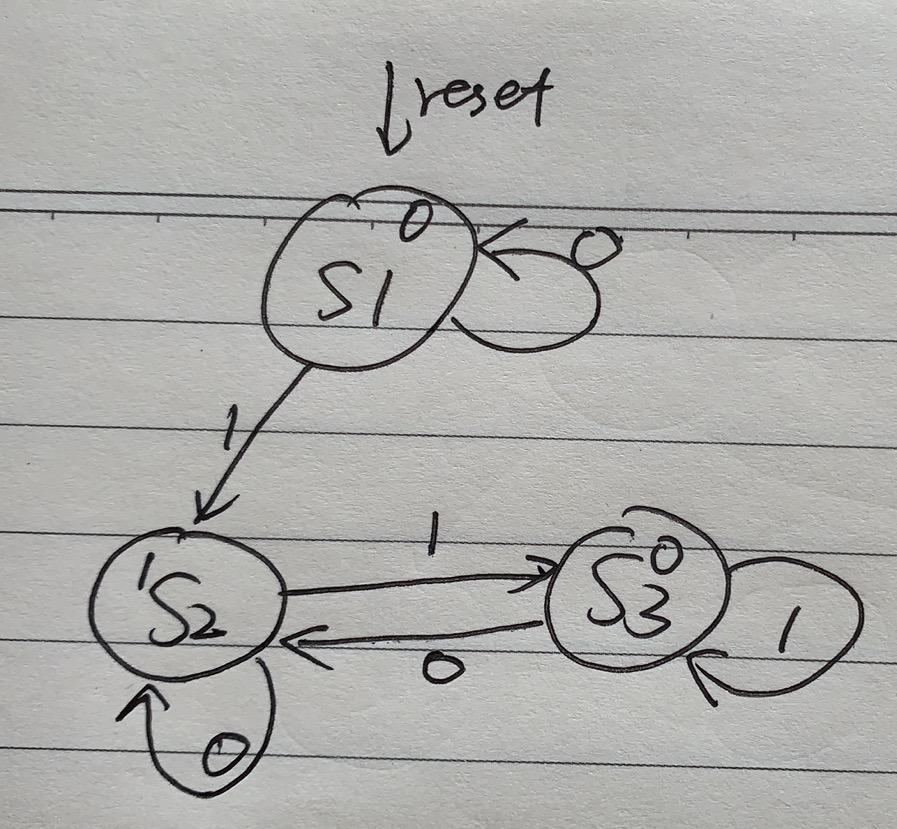 reset
0
S1
0
1
1
1
S2
0
S3
1
0
0